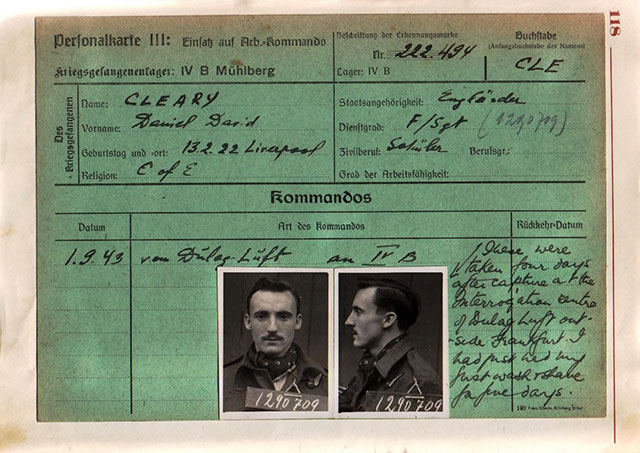 118
Personalkarte III: Einsatz auf Arb.-Kommando
Kriegsgefangenenlager: IV B Mühlberg
Beschriftung der Erkennungsmarke
Nr. 222.494
Lager: IV B
Buchstabe
(Anfangsbuchstabe des Namens)
CLE
Des Kriegsgefangenen
Name: CLEARY
Vorname: Daniel David
Geburtstag und -ort: 13.2.22 Liverpool
Religion: C of E
Staatsangehörigkeit: Engländer
Dienstgrad: F/Sgt (1290709)
Zivilberuf: Schüler Berufsgr.:
Grad der Arbeitsfähigkeit:
Kommandos
Datum Art des Kommandos Rückkehr-Datum
1.9.43 von Dulag-Luft an IV B
These were
taken four days
after capture at the
interrogation centre
of Dulag Luft out-
side Frankfurt. I
had just had my
first wash & shave
for five days.
1290709
1290709